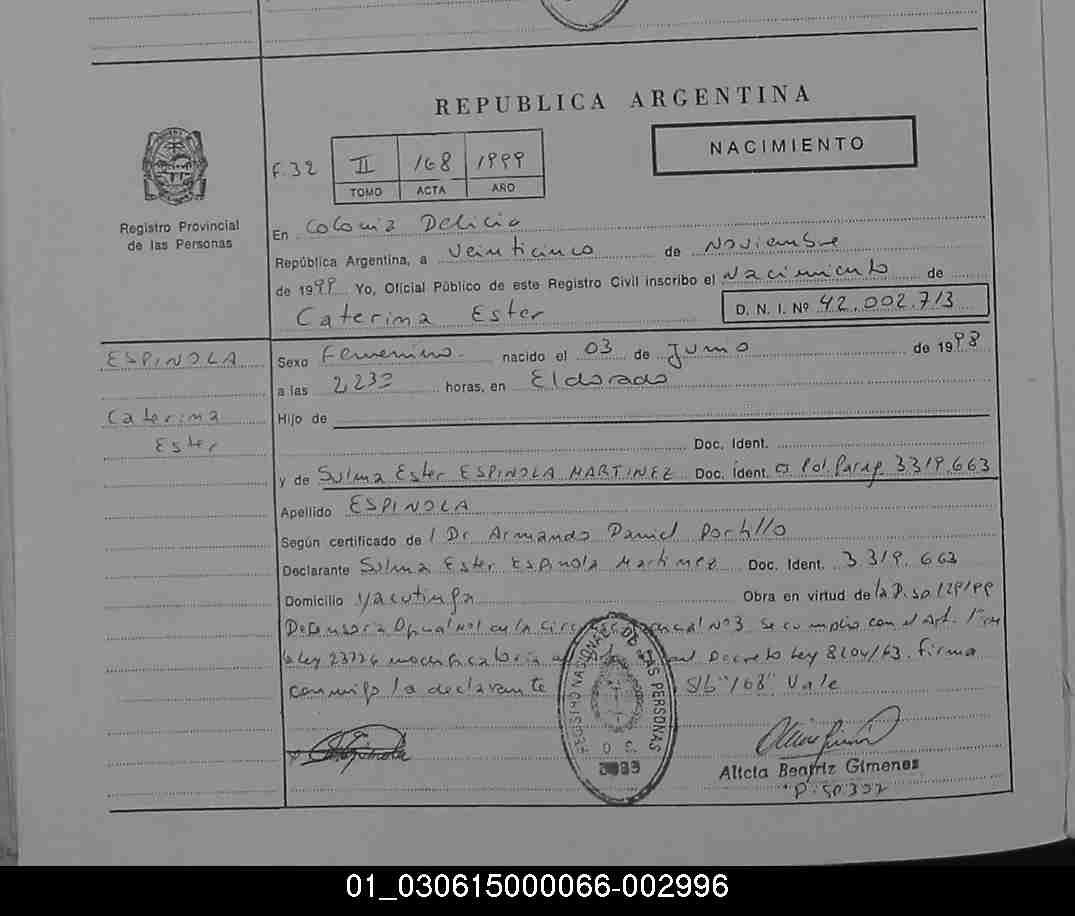 REPUBLICA ARGENTINA
NACIMIENTO
F. 32 II 168 1999
TOMO ACTA AÑO
Registro Provincial
de las Personas
En Colonia Delicia
República Argentina, a veinticinco de Noviembre
de 1999 Yo, Oficial Público de este Registro Civil inscribo el Nacimiento de
Caterina Ester D. N. I. Nº 42.002.713
ESPINOLA
Sexo Femenino. nacido el 03 de Junio de 1998
a las 2230 horas, en Eldorado
Caterina
Ester
Hijo de
Doc. Ident.
y de Sulma Ester ESPINOLA MARTINEZ Doc. Ident. Pol. Parag. 3319.663
Apellido ESPINOLA
Según certificado de Dr Armando Daniel Portillo
Declarante Sulma Ester Espinola Martinez Doc. Ident. 3.319.663
Domicilio Yacutinga Obra en virtud de la
Defensoria Oficial Nº1 en la Nº3 Se cumplio con el Art. 1º
Ley 23776 modificatoria Decreto Ley 8204/63. Firma
conmigo la declarante S/b "168" Vale
REGISTRO NACIONAL DE LAS PERSONAS
Alicia Beatriz Gimenez
01_030615000066-002996